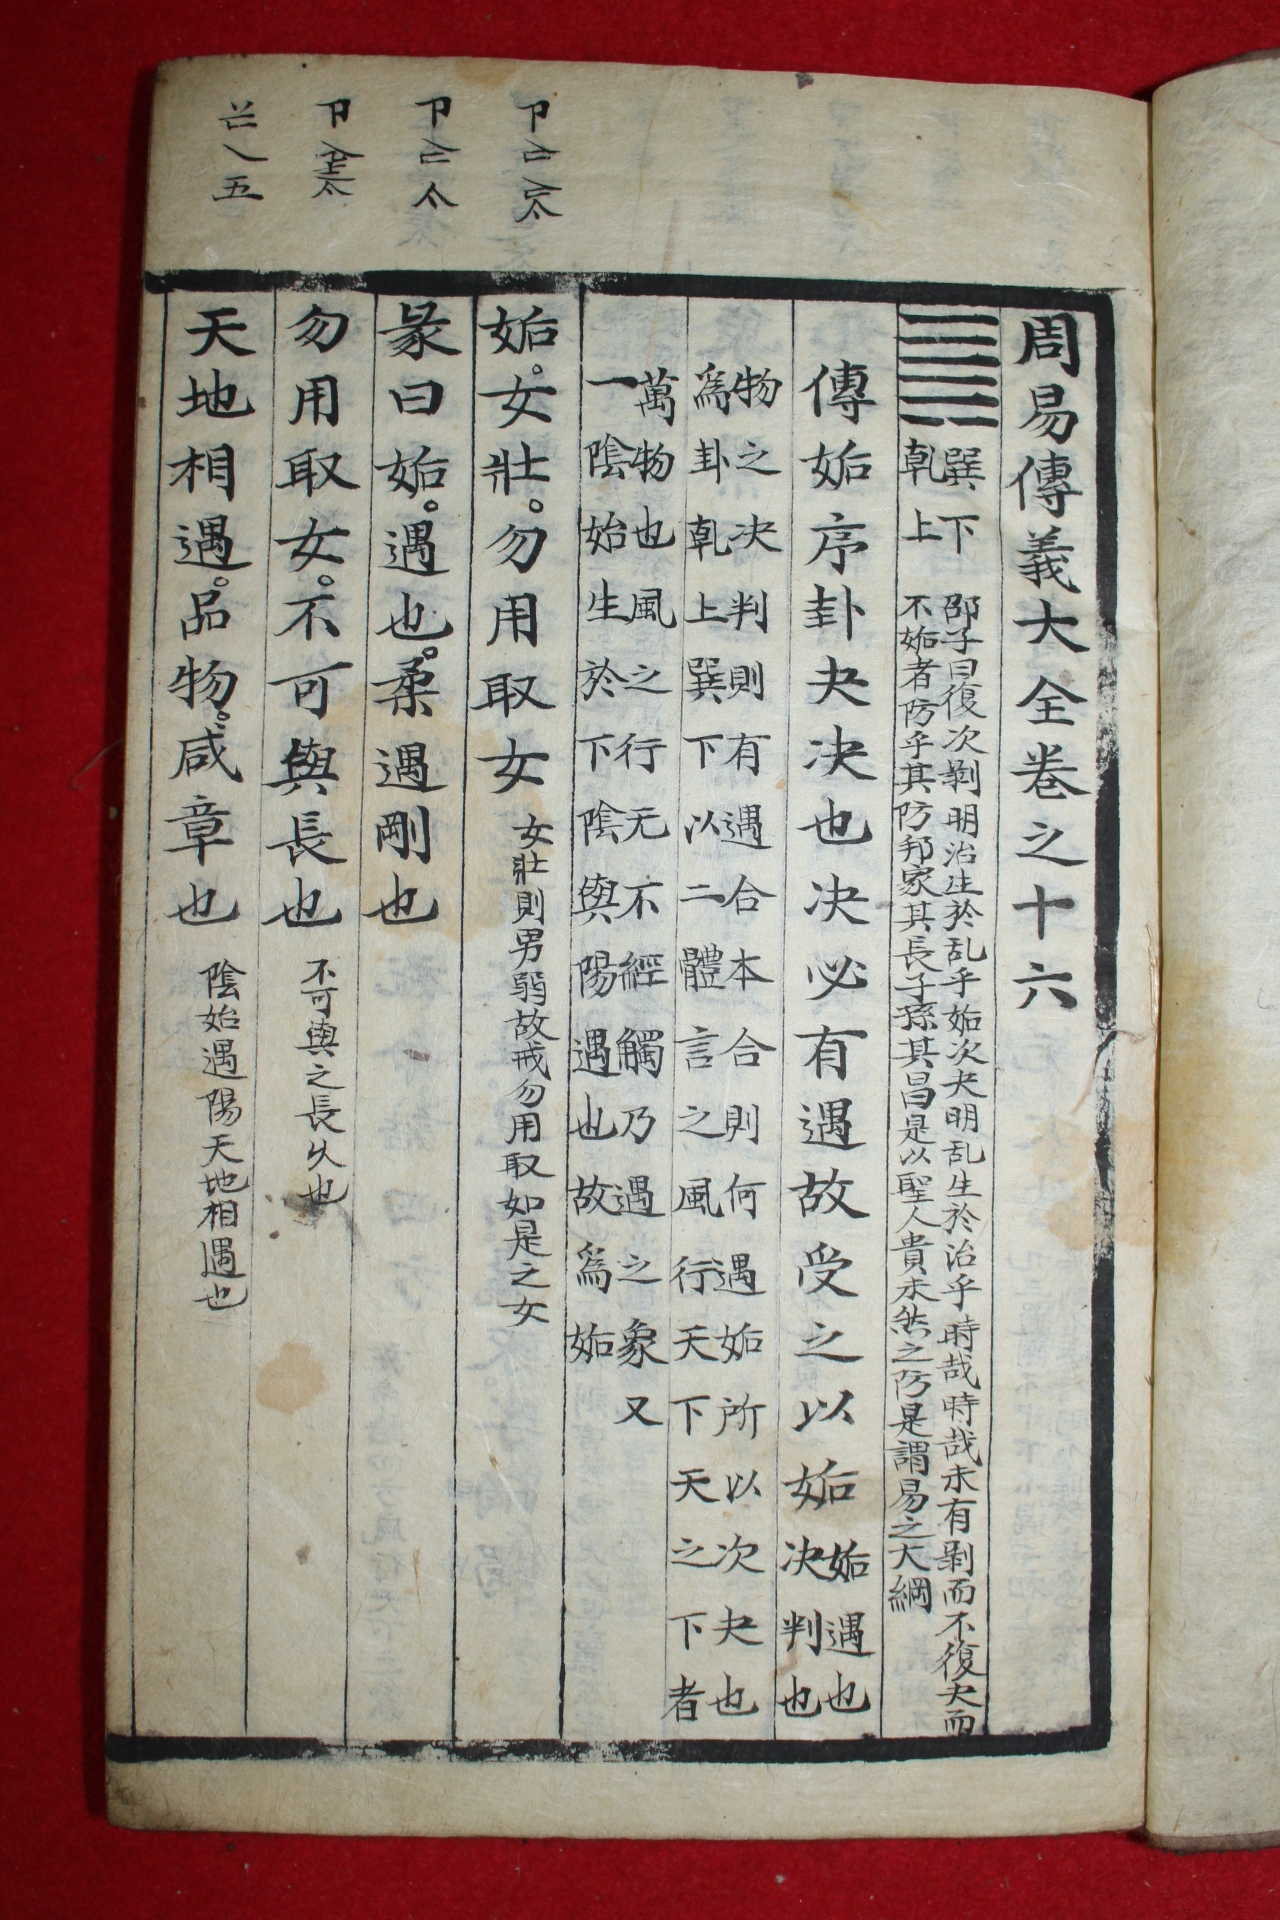 周易傳義大全卷之十六
巽下
乹上
邵子曰復次剥明治生於乱乎姤次夬明乱生於治乎時哉時哉未有剥而不復夬而
不姤者防乎其防邦家其長子孫其昌是以聖人貴未然之防是謂易之大綱
傳姤序卦夬决也决必有遇故受之以姤
姤遇也
决判也
物之决判則有遇合本合則何遇姤所以次夬也
爲卦乹上巽下以二體言之風行天下天之下者
萬物也風之行无不經觸乃遇之象又
一陰始生於下陰與陽遇也故爲姤
姤。女壯。勿用取女 女壯則男弱故戒勿用取如是之女
彖曰姤。遇也。柔遇剛也
勿用取女。不可與長也 不可與之長久也
天地相遇。品物。咸章也 陰始遇陽天地相遇也